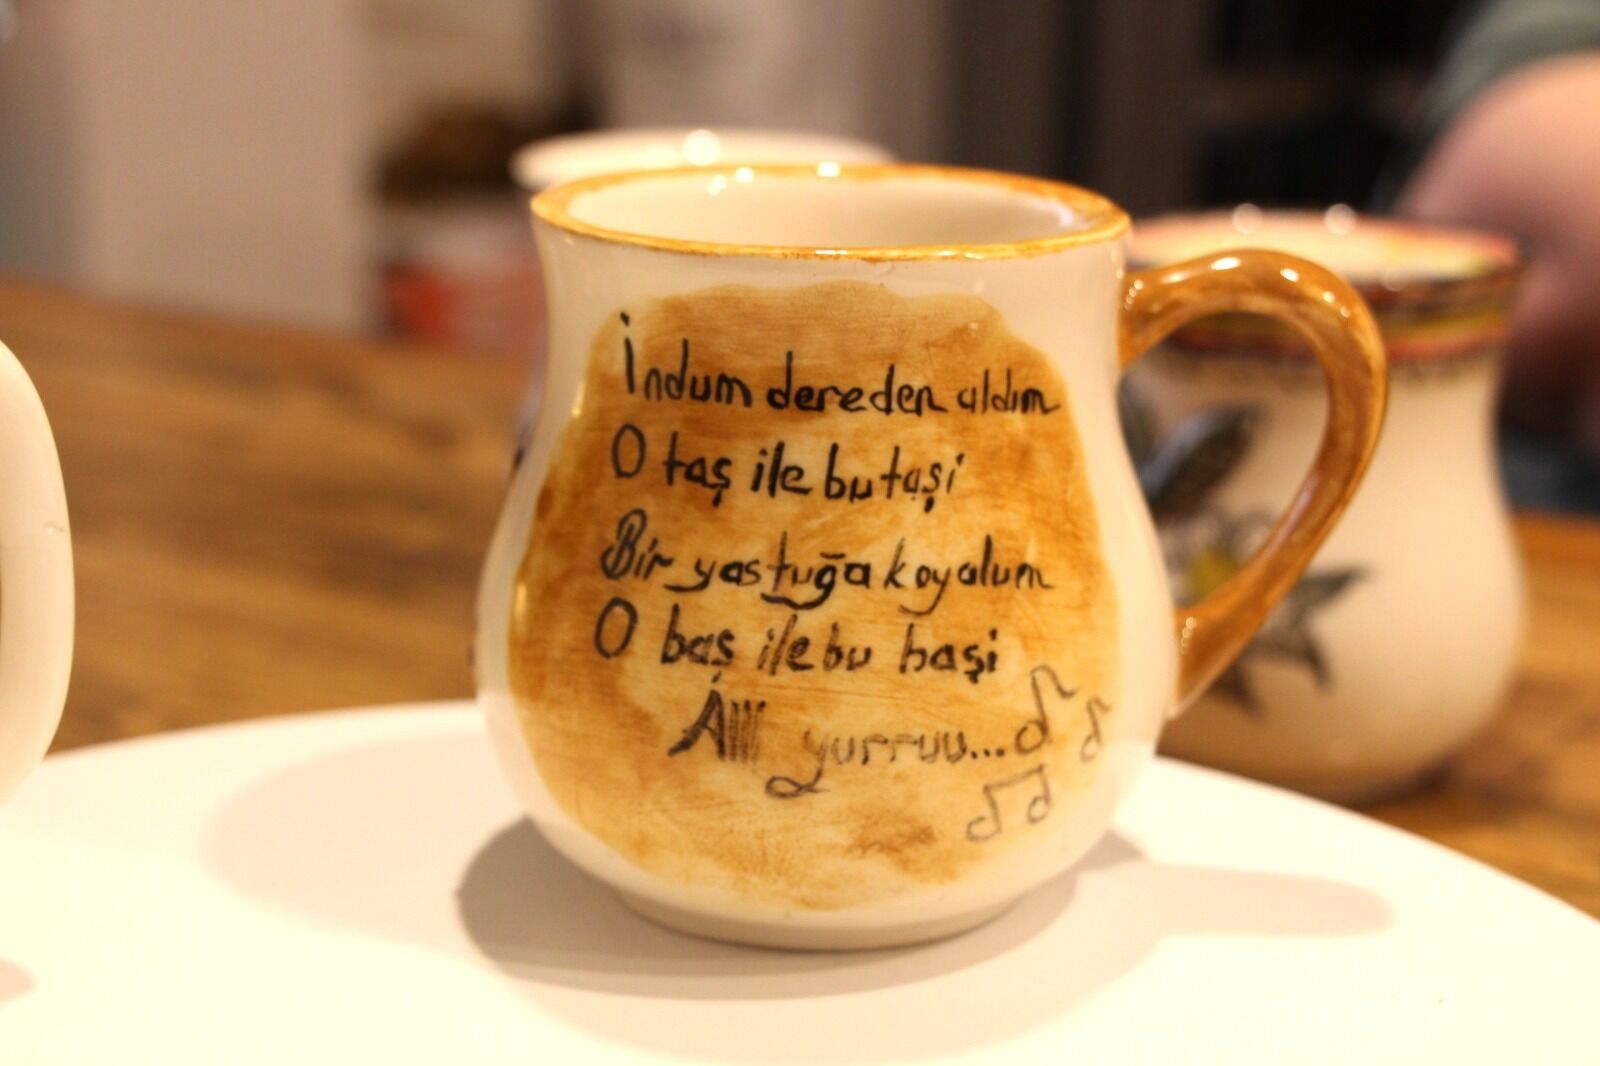 İndum dereden aldım
O taş ile bu taşi
Bir yastuğa koyalum
O baş ile bu başi
Allı yurruu...